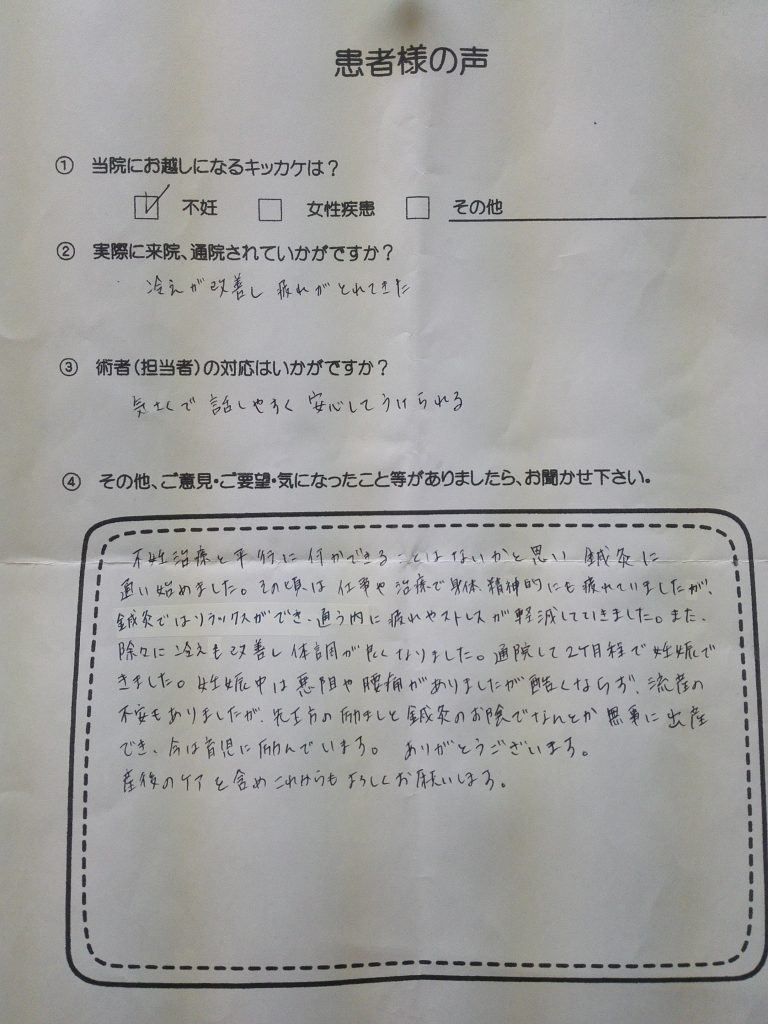 患者様の声
① 当院にお越しになるキッカケは？
不妊 女性疾患 その他
② 実際に来院、通院されていかがですか？
冷えが改善し 疲れがとれてきた
③ 術者（担当者）の対応はいかがですか？
気さくで 話しやすく 安心してうけられる
④ その他、ご意見・ご要望・気になったこと等がありましたら、お聞かせ下さい。
不妊治療と平行に何かできることはないかと思い 鍼灸に
通い始めました。その頃は 仕事や治療で身体、精神的にも疲れていましたが、
鍼灸ではリラックスができ、通う内に疲れやストレスが軽減していきました。また、
除々に冷えも改善し体調が良くなりました。通院して2ケ月程で妊娠で
きました。妊娠中は悪阻や腰痛がありましたが酷くならず、流産の
不安もありましたが、先生方の励ましと鍼灸のお陰でなんとか無事に出産
でき、今は育児に励んでいます。 ありがとうございます。
産後のケアも含めこれからもよろしくお願いします。